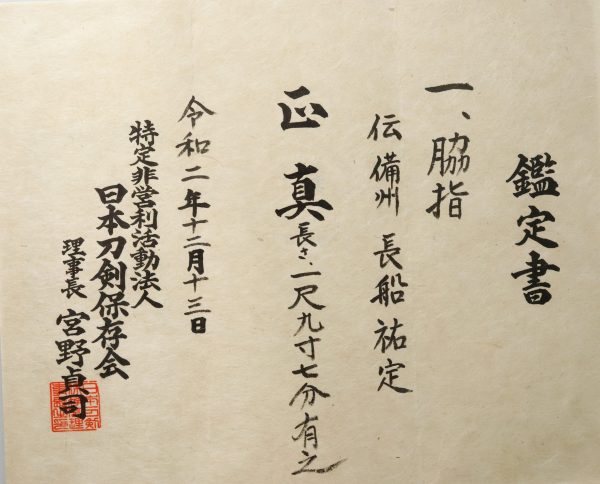 鑑定書
一、脇指
伝 備州 長船 祐定
正 真 長さ、一尺九寸七分有之
令和二年十二月十三日
特定非営利活動法人
日本刀剣保存会
理事長 宮野貞司